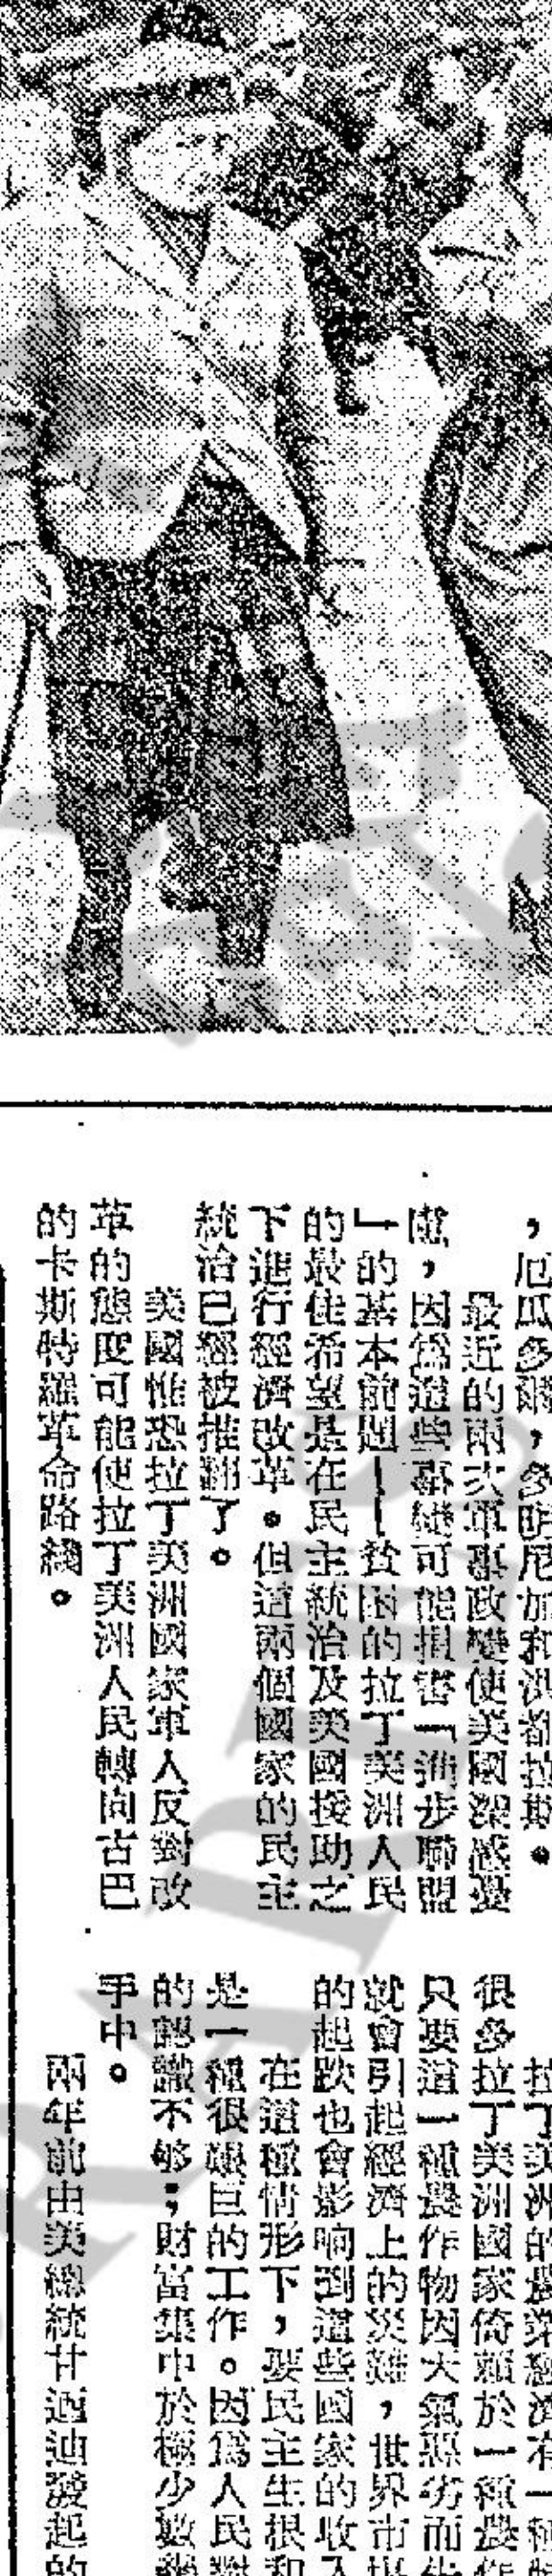 ，厄瓜多爾，多明尼加和洪都拉斯。
最近的兩次軍事政變使美國深感憂
慮，因為這些事變可能損害「進步聯盟
」的基本前題——貧困的拉丁美洲人民
的最佳希望是在民主統治及美國援助之
下進行經濟改革。但這兩個國家的民主
統治已經被推翻了。
美國惟恐拉丁美洲國家軍人反對改
革的態度可能使拉丁美洲人民轉向古巴
的卡斯特羅革命路綫。
拉丁美洲的農業經濟有一種
很多拉丁美洲國家倚賴於一種農作
只要這一種農作物因天氣惡劣而
就會引起經濟上的災難，世界市場
的起跌也會影响到這些國家的收入
在這種情形下，要民主生根和
是一種很艱巨的工作。因爲人民對
的認識不够；財富集中於極少數
手中。
兩年前由美總統甘迺迪發起的